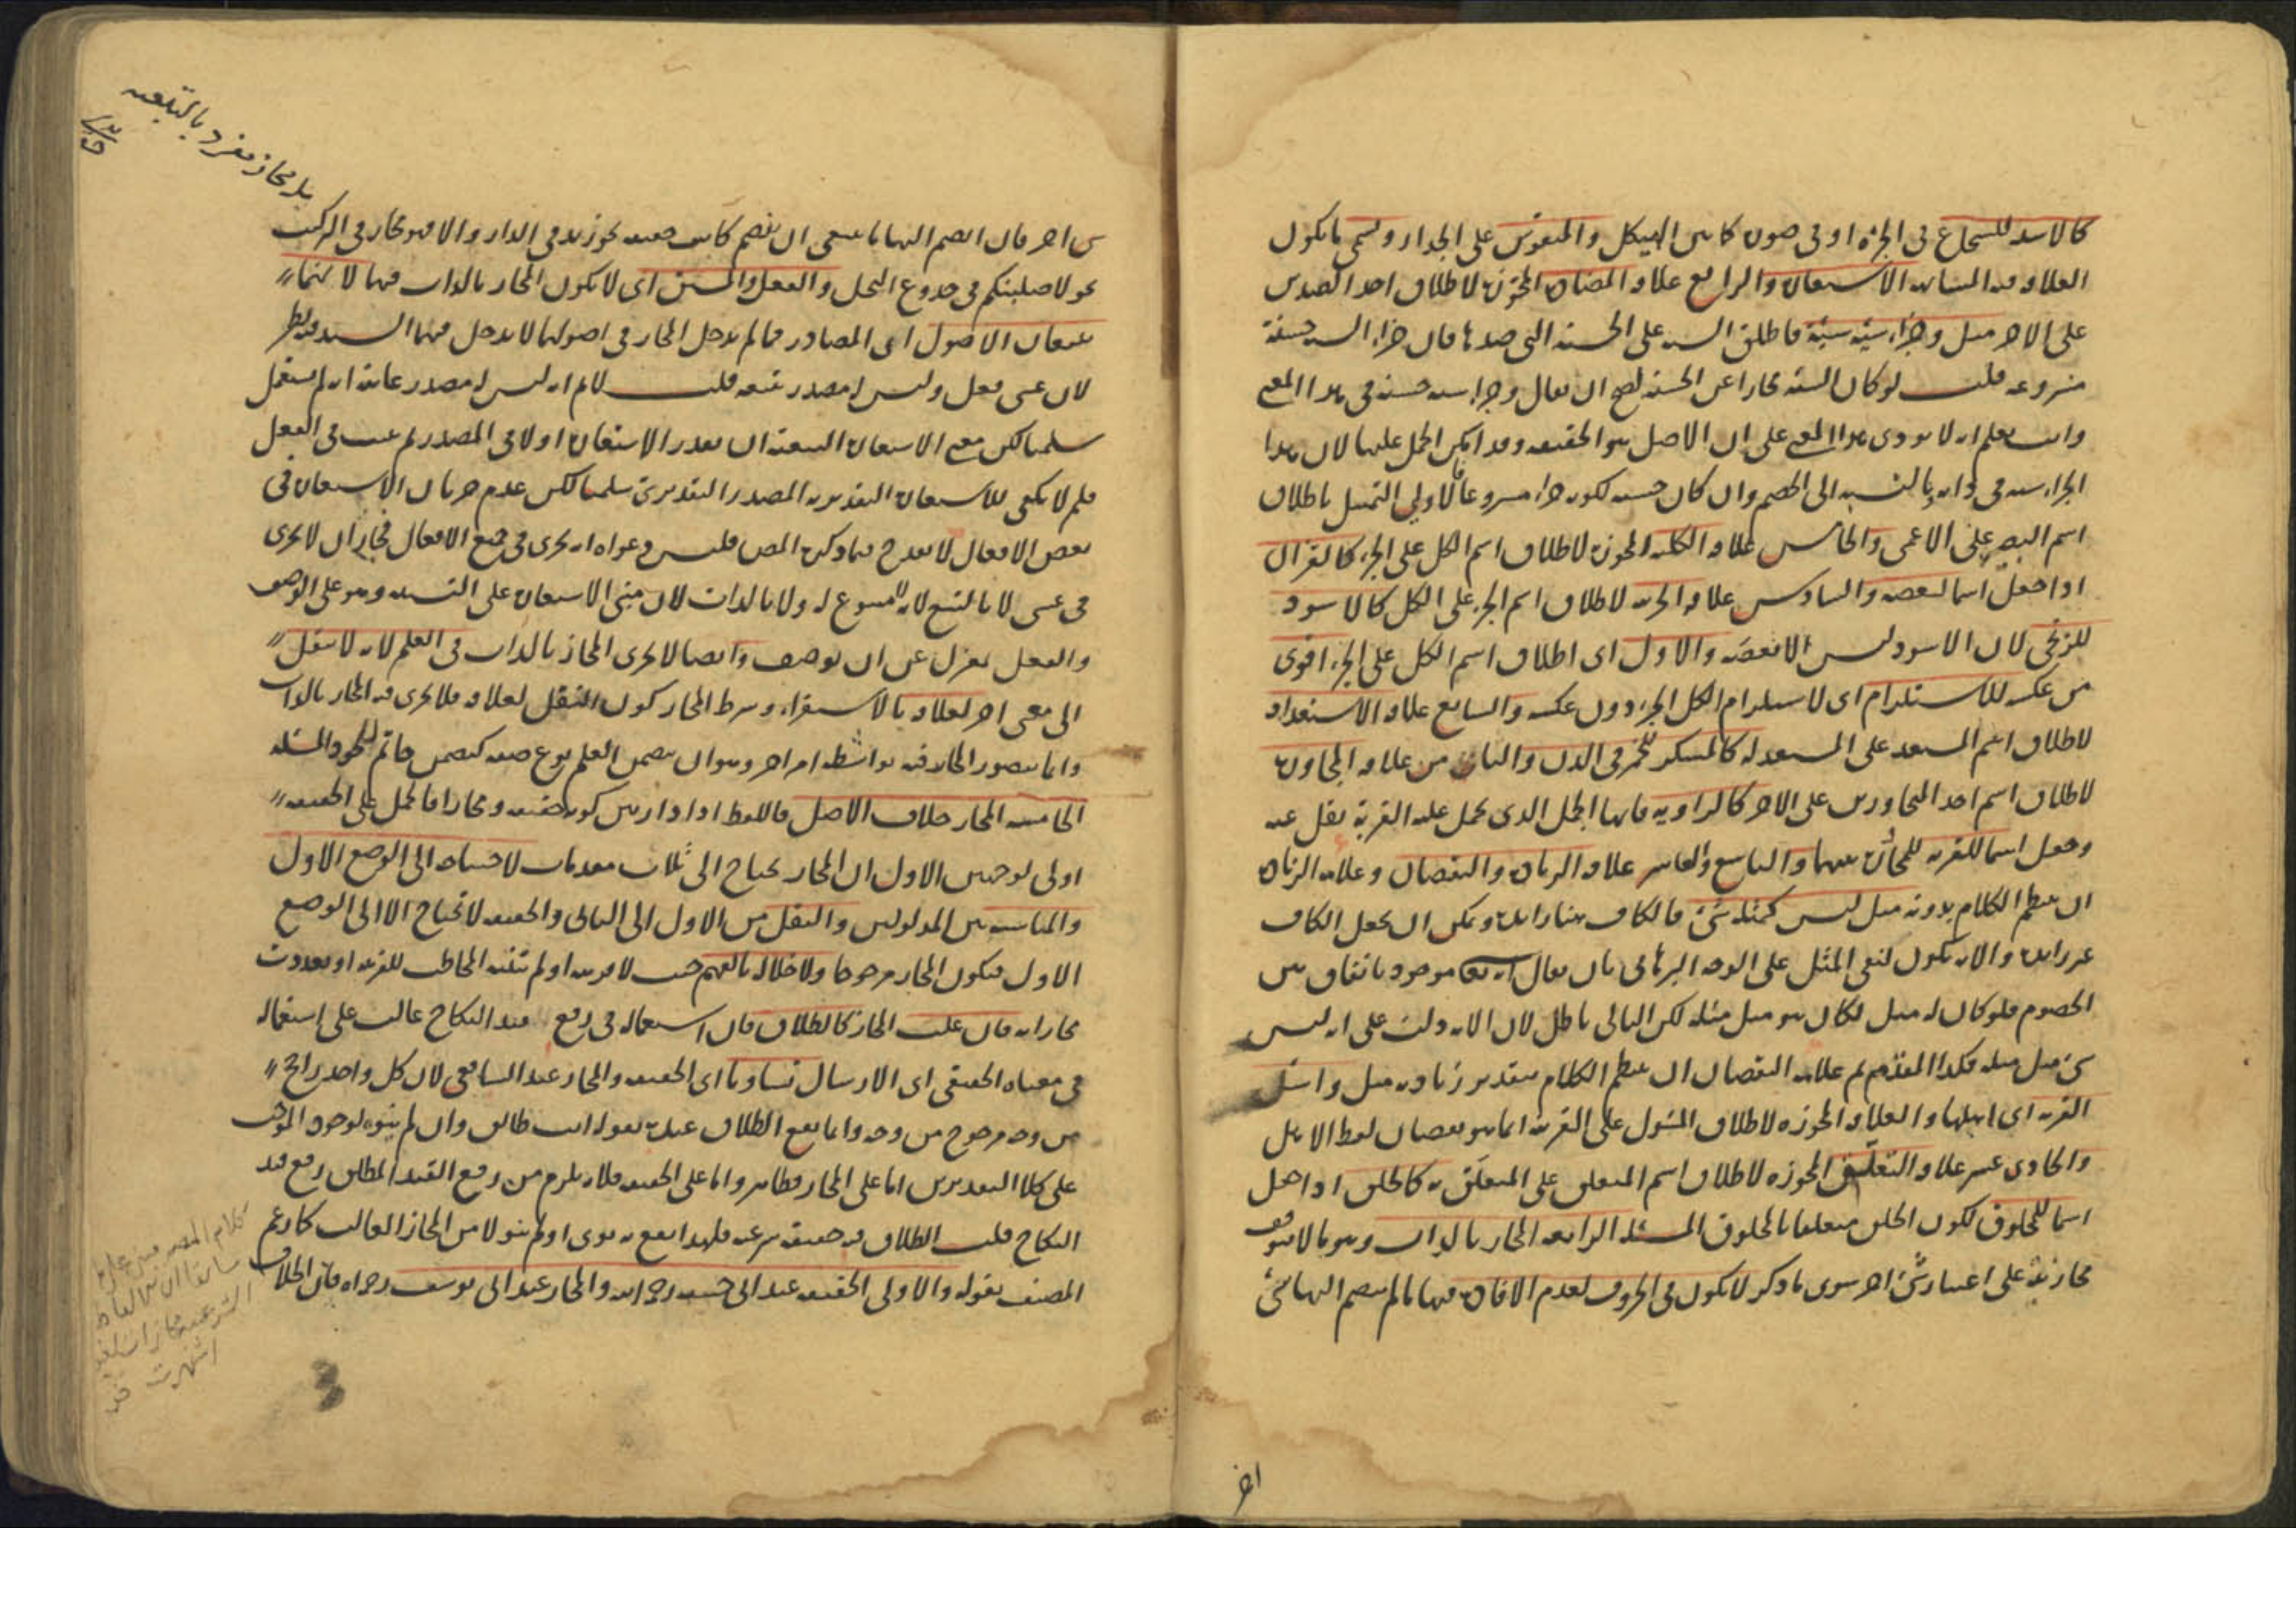 كالاسد للشجاع في الجرأة او في صورة كما بين الهيكل والمنقوش على الجدار وتسمى ما يكون
العلاقة فيه المشابهة الاستعارة والرابع علاقة المضادة المجوزة لاطلاق احد الضدين
على الاخر مثل وجزاء سيئة سيئة فاطلق السيئة على الحسنة التي ضدها فان جزاء السيئة حسنة
مشروعة قلت لو كان السيئة مجازا عن الحسنة لصح ان يقال وجزاء سيئة حسنة في هذا المعنى
وانت تعلم انه لا يودي هذا المعنى على ان الاصل هو الحقيقة وقد امكن الحمل عليها لان هذا
الجزاء سيئة في ذاته بالنسبة الى الخصم وان كان حسنة لكونه جزاء مشروعا فالاولى التمثيل باطلاق
اسم البصير على الاعمى والخامس علاقة الكلية المجوزة لاطلاق اسم الكل على الجزء كالقرآن
اذا جعل اسما لبعضه والسادس علاقة الجزئية لاطلاق اسم الجزء على الكل كالاسود
للزنجي لان الاسود ليس الا بعضه والاول اى اطلاق اسم الكل على الجزء اقوى
من عكسه للاستلزام اى لاستلزام الكل الجزء دون عكسه والسابع علاقة الاستعداد
لاطلاق اسم المستعد على المستعد له كالمسكر للخمر في الدن والثامن من علاقة المجاورة
لاطلاق اسم احد المتجاورين على الاخر كالراوية فانها الجمل الذي يحمل عليه القربة نقل عنه
وجعل اسما للقربة للمجاورة بينهما والتاسع والعاشر علاقة الزيادة والنقصان وعلامة الزيادة
ان ينتظم الكلام بدونه مثل ليس كمثله شئ فالكاف هنا زايدة ويمكن ان يجعل الكاف
غير زايدة والاية يكون لنفي المثل على الوجه البرهاني بان يقال انه تعا موجود باتفاق من
الخصوم فلو كان له مثل لكان هو مثل مثله لكن التالي باطل لان الاية دلت على انه ليس
شئ مثل مثله فكذا المقدم ثم علامة النقصان ان ينتظم الكلام بتقدير زيادة مثل واسئل
القرية اى اهلها والعلاقة المجوزة لاطلاق المسؤل على القرية انما هو نقصان لفظ الاهل
والحادى عشر علاقة التعليق المجوزة لاطلاق اسم المتعلق على المتعلق به كالخلق اذا جعل
اسما للمخلوق لكون الخلق متعلقا بالمخلوق المسئلة الرابعة المجاز بالذات وهو ما لا يتوقف
مجازيته على اعتبار شئ اخر سوى ما ذكر لا يكون في الحروف لعدم الافادة فيها ما لم ينضم اليها شئ
اخر
بل مجاز مفرد بالتبعية
شئ اخر فان انضم اليها ما ينبغي ان ينضم كانت حقيقة نحو زيد في الدار والا فهو مجاز في التركيب
نحو لاصلبنكم في جذوع النخل والفعل والمشتق اى لا يكون المجاز بالذات فيهما لانهما
يتبعان الاصول اى المصادر فما لم يدخل المجاز في اصولهما لا يدخل فيهما البتة وفيه نظر
لان عسى فعل وليس له مصدر يتبعه قلت لا نم انه ليس له مصدر غايته انه لم يستعمل
سلمنا لكن معنى الاستعارة التبعية ان يقدر الاستعارة اولا في المصدر ثم يثبت في الفعل
فلم لا يكفي للاستعارة التقديرية المصدر التقديري سلمنا لكن عدم جريان الاستعارة في
بعض الافعال لا يقدح فيما ذكره المص فليس دعواه انه يجرى في جميع الافعال فجاز ان لا يجرى
في عسى لا بالتبع لانه لا متبوع له ولا بالذات لان مبنى الاستعارة على التشبيه وهو على الوصف
والفعل بمعزل عن ان يوصف وايضا لا يجرى المجاز بالذات في العلم لانه لا ينقل
الى معنى اخر لعلاقة بالاستقراء وشرط المجاز كون النقل لعلاقة فلا يجرى فيه المجاز بالذات
وانما يتصور المجاز فيه بواسطة امر اخر وهو ان يتضمن العلم نوع صفة كتضمن حاتم للجود المسئلة
الخامسة المجاز خلاف الاصل فاللفظ اذا دار بين كونه حقيقة ومجازا فالحمل على الحقيقة
اولى لوجهين الاول ان المجاز يحتاج الى ثلاث مقدمات لاحتياجه الى الوضع الاول
والمناسبة بين المدلولين والنقل من الاول الى الثاني والحقيقة لا تحتاج الا الى الوضع
الاول فيكون المجاز مرجوحا ولاخلاله بالفهم حيث لا قرينة او لم يتنبه المخاطب للقرينة او تعددت
مجازاته فان غلب المجاز كالطلاق فان استعماله في رفع قيد النكاح غالب على استعماله
في معناه الحقيقي اى الارسال تساويا اى الحقيقة والمجاز عند الشافعي لان كل واحد راجح
من وجه مرجوح من وجه وانما يقع الطلاق عنده بقوله انت طالق وان لم ينوه لوجود الموجب
على كلا التقديرين اما على المجاز فظاهر واما على الحقيقة فلانه يلزم من رفع القيد المطلق رفع قيد
النكاح قلت الطلاق فيه حقيقة شرعية فلهذا يقع به نوى او لم ينو لا من المجاز الغالب كما زعم
المصنف بقوله والاولى الحقيقة عند ابي حنيفة رحمه الله والمجاز عند ابي يوسف رحمه الله فان الخلاف
كلام المصنف مبني على ما
سابقا ان الالفاظ
الشرعية مجازات لغوية
اشتهرت